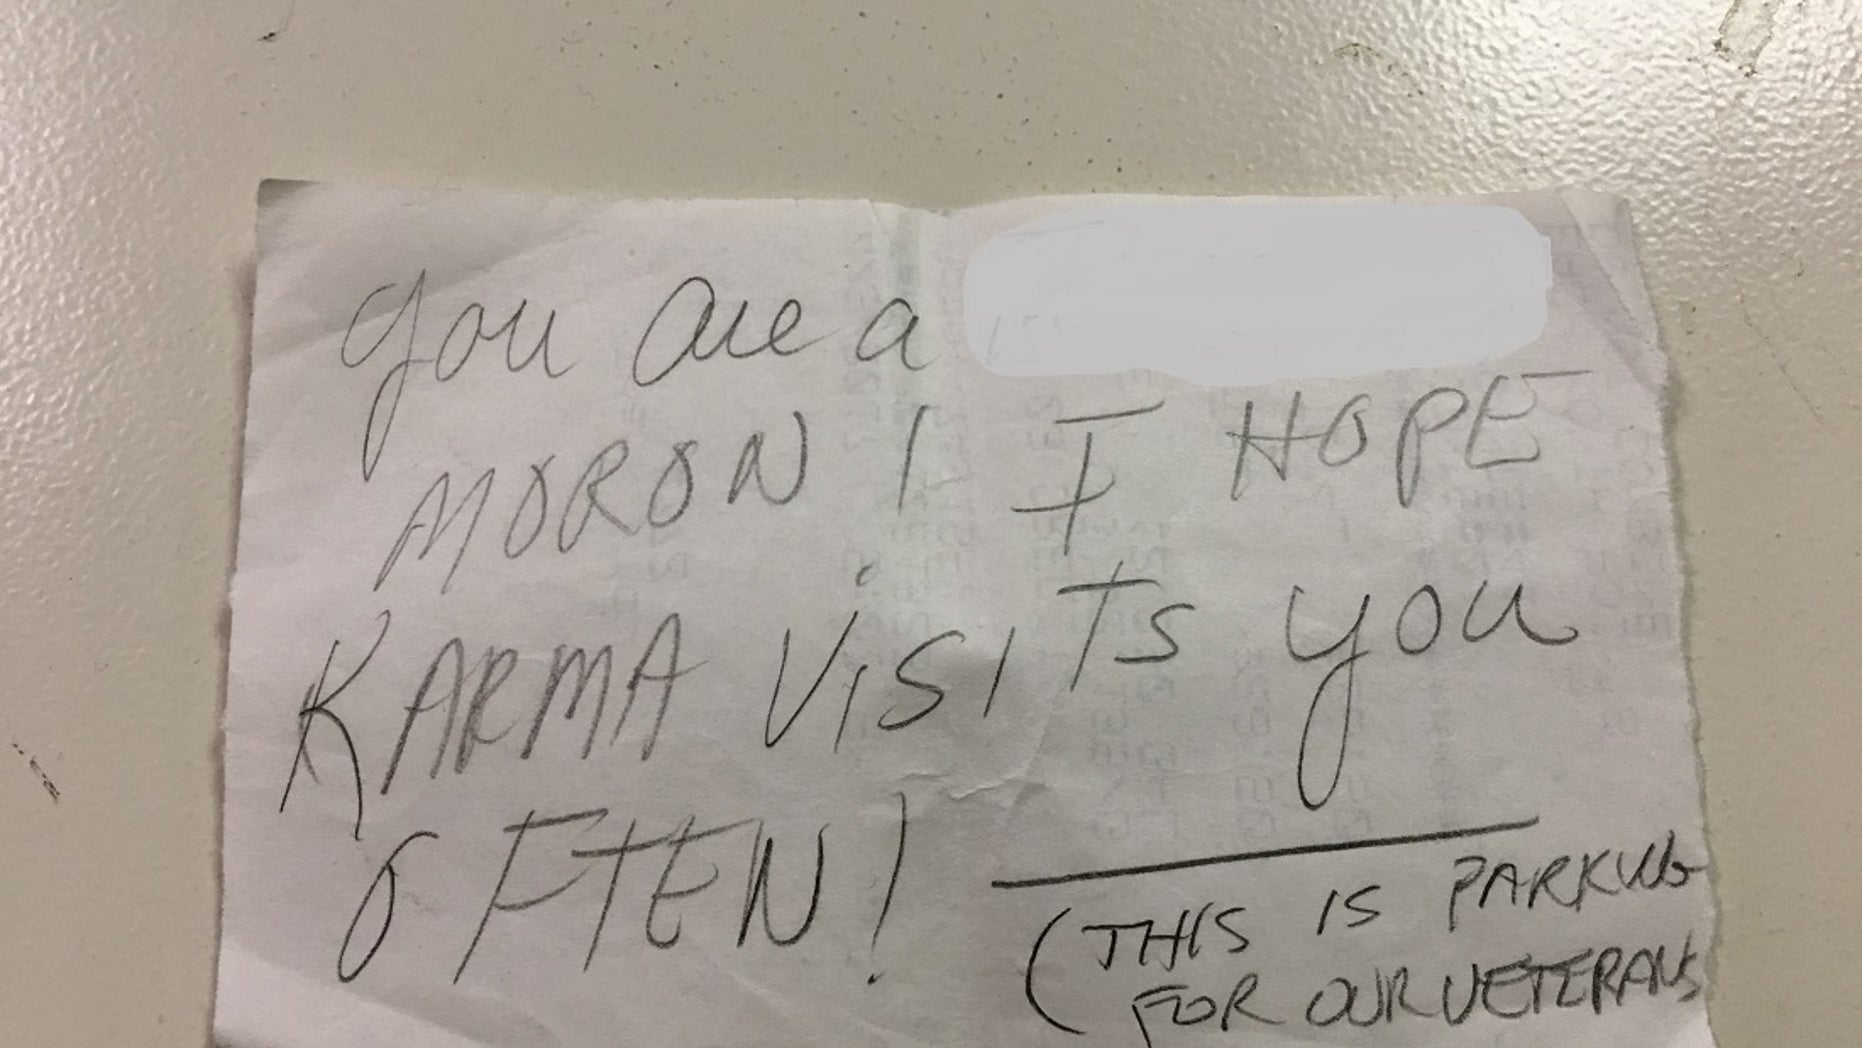 You are a
MORON! I HOPE
KARMA VISITS YOU
OFTEN!
(THIS IS PARKING
FOR OUR VETERANS